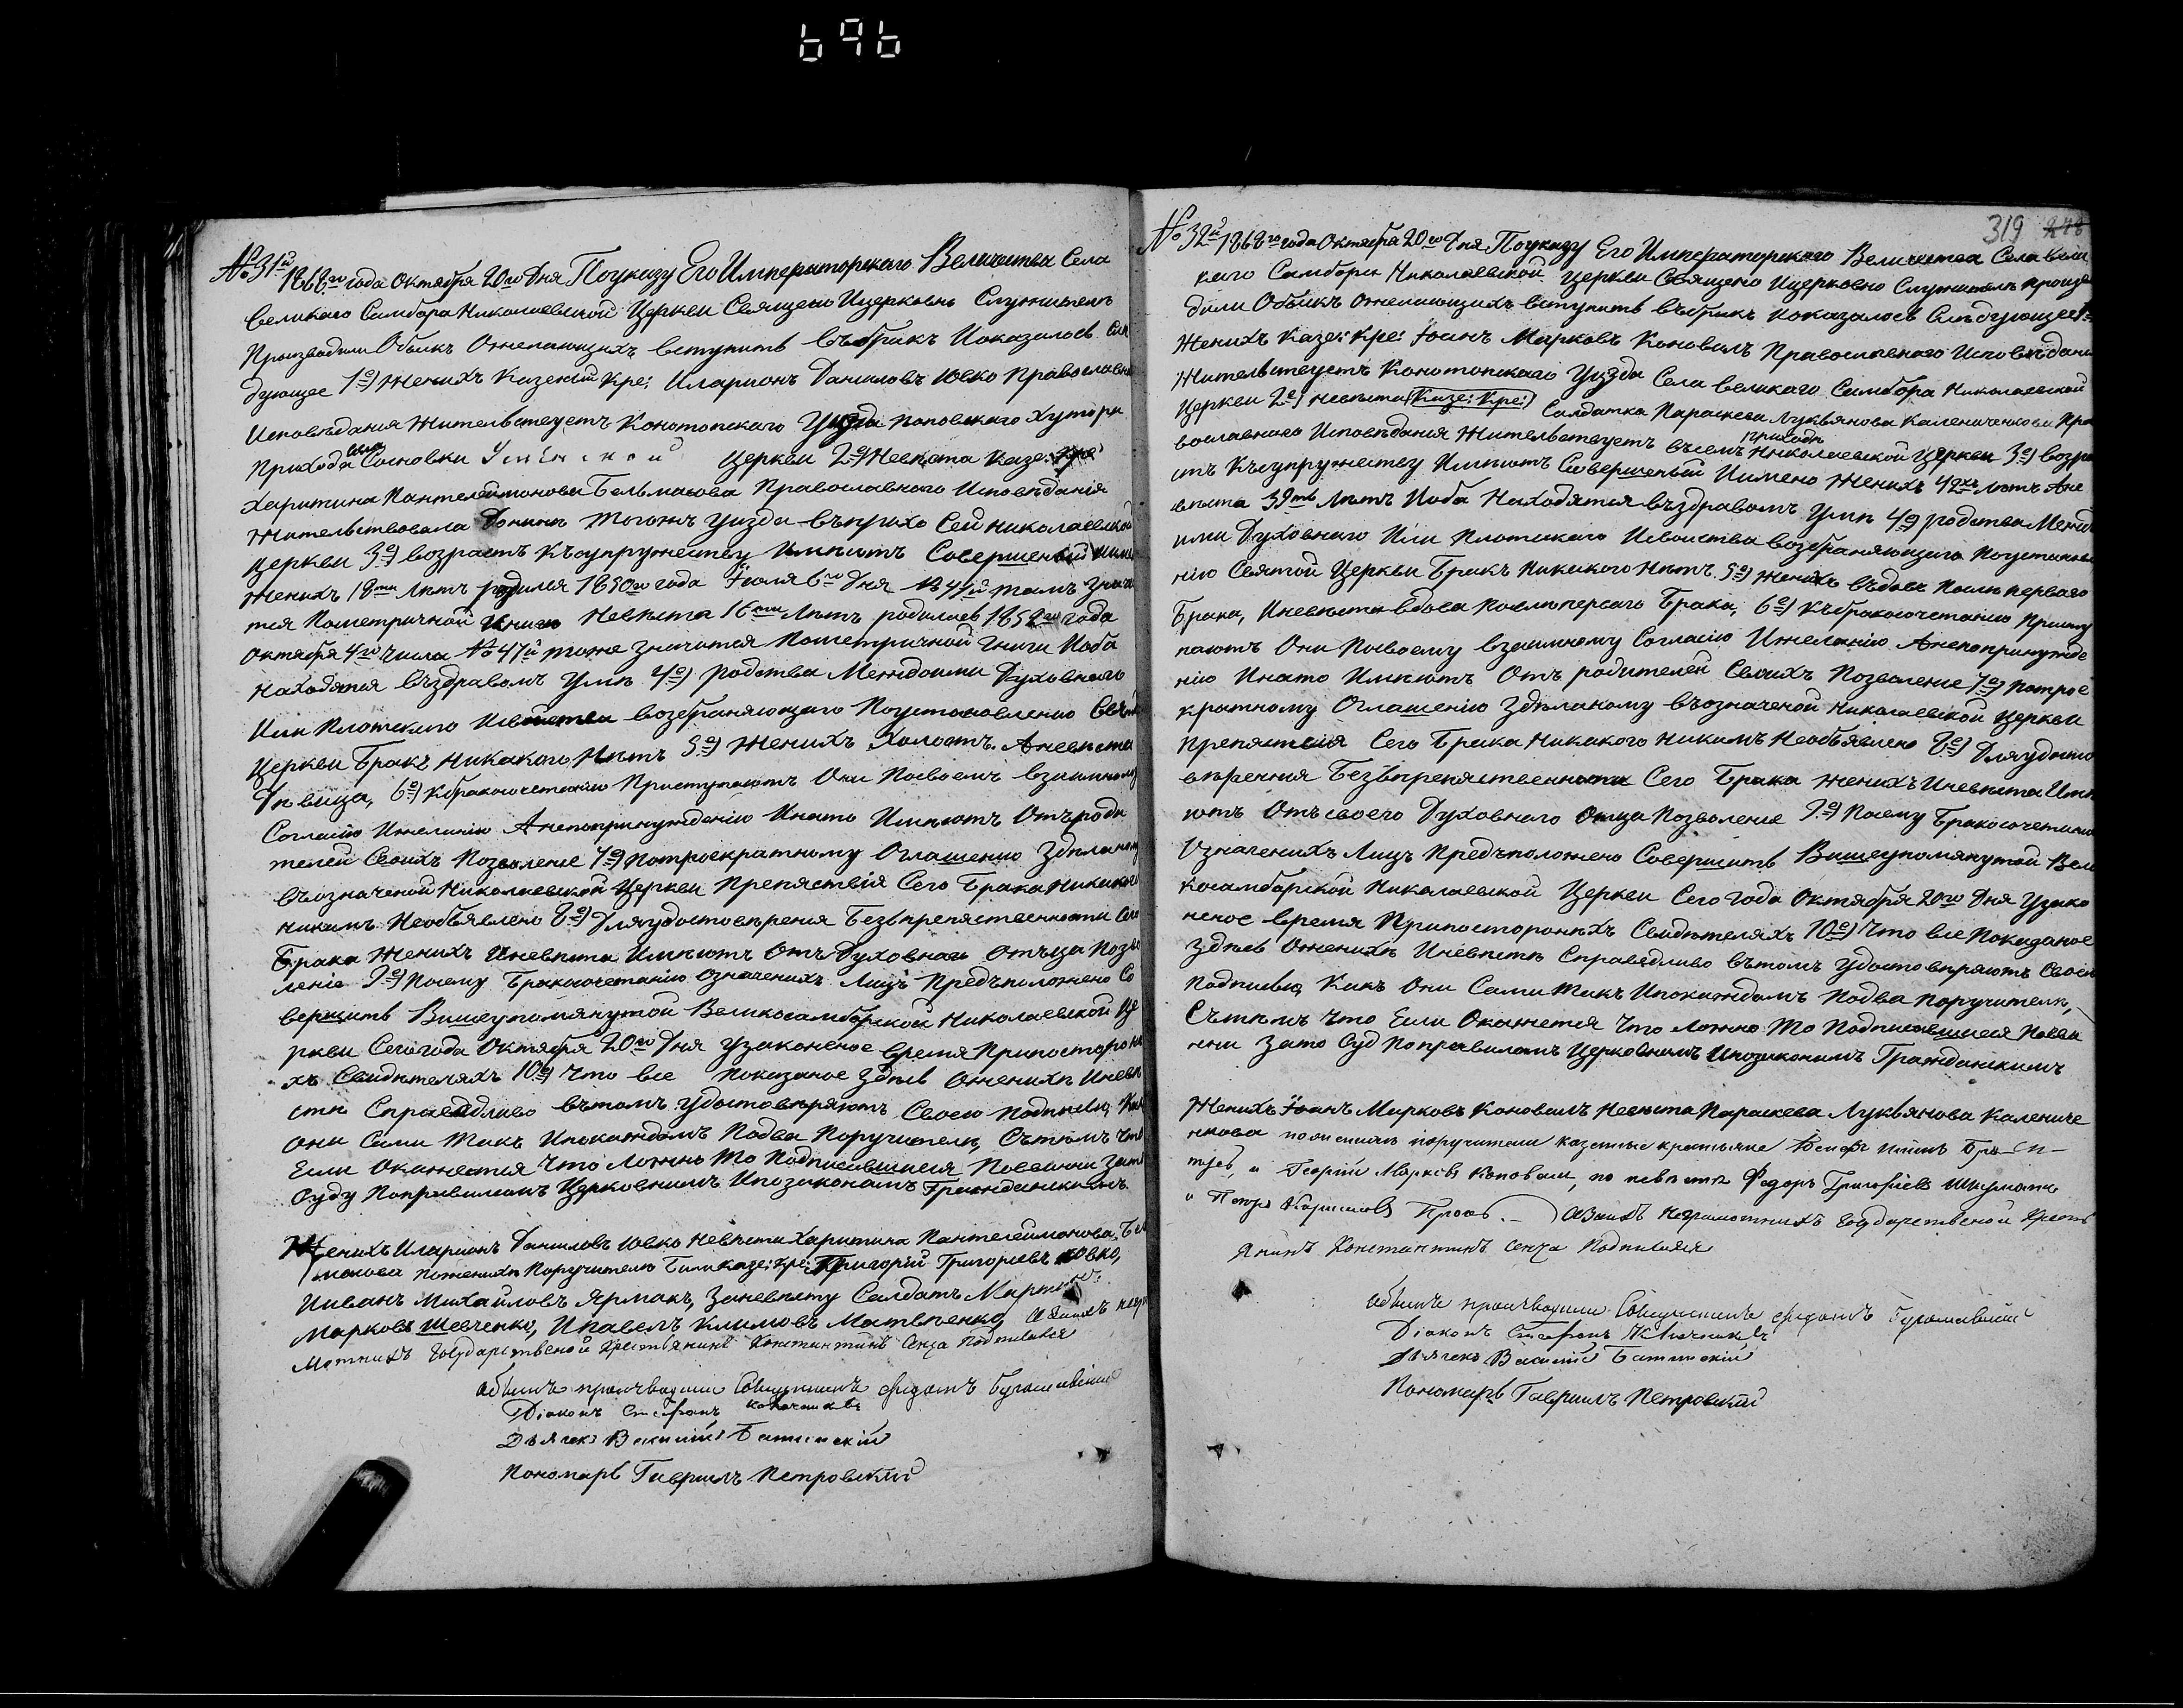 696
№31й 1868го года Октября 20го Дня Поуказу Его Императорскаго Величества Села
великаго Самбора Николаевской Церкви Священо Ицерковно Служители
Производили Обыкъ Ожелающихъ вступить въбракъ Иоказалось Слѣ
дующее 1е) Женихъ Казений Кре: Иларионъ Даниловъ Ювко Православна
Исповѣданія Жительствуетъ Конотопскаго Уизда Поповскаго Хутора
Прихода Села Сосновки Успенской Церкви 2е) Невѣста Казе: Кре:
Харитина Пантелеймонова Бельмасова Православного Исповѣданія
Жительствовала Донинѣ Тогожъ уизда въприхо Сей Николаевской
церкви 3е) возрастъ Късупружеству Имѣютъ Совершеный Име
Женихъ 18ти Лѣтъ родился 1850го года Июля 6го Дня № 44й тамъ Знач
тся Пометричной Книги Невѣста 16ти Лѣтъ родилась 1852го года
Октября 4го Числа № 47й тоже Значится Пометричной Книги Иоба
Находятся въздравомъ Умѣ 4е) родства Междоими Духовного
Или Плотского Исвойства возбраняющаго Поустановленію Свят
Церкви Бракъ Никакого Нѣтъ 5е) Женихъ Холостъ. Аневѣста
Дѣвица, 6е) Кбракосочетанію Приступаютъ Они Посвоемъ взаимному
Согласію Ижеланію Анепопринужденію Инато Имѣютъ Отъроди
телей Своихъ Позволеніе 7е) Потроекратному Оглашенію Здѣланому
въозначеной Николаевской Церкви Препяствія Сего Брака Никакого
Никимъ Необъявлено 8е) Дляудостовѣренія Безъпрепяственности Сего
Брака Женихъ Иневѣста Имѣютъ Отъ Духовнаго Отъца Позво
леніе 9е) Поему Бракосочетанію Означенихъ Лицъ Предъположено Со
вершить Вишеупомянутой Великосамборской Николаевской Це
ркви Сегогода Октября 20го Дня Узаконеное время Припосторон
хъ Свидѣтеляхъ 10е) Что все Показаное Здѣсь Оженихѣ Иневѣ
стѣ Справедливо вътомъ Удостовѣряютъ Своею Подписью Какъ
Они Сами Такъ Ипокаждомъ Подва Поручителя, Сътѣмъ Что
Если Окажется Что Ложно То Подписавшиеся Повинни Зато
Суду Поправиламъ Церковнимъ Ипозаконамъ Гражданскимъ
Женихъ Иларионъ Даниловъ Ювко Невѣста Харитина Пантелеймонова Бел
масова Поженихѣ Поручителю Били казе: кре: Григорій Григориевъ Ювко,
Ииванъ Михайловъ Ярмакъ, Заневѣсту Салдатъ
Марковъ Шевченко, Ипавелъ Климовъ Матвѣенко, Азаихъ негра
мотнихъ Государственой Крестьянинъ Константинъ Сенча Подписался
Обыкъ производили Священникъ
Діаконъ Стефанъ
Дьячекъ Василій
Пономарь Гаврилъ Петровскій
319 248
№32й 1868го года Октября 20го Дня Поуказу Его Императорскаго Величества Села Вели
каго Самбора Николаевской Церкви Священо Ицерковно Служители Произво
дили Обыкъ Ожелающихъ вступить въбракъ Иоказалось Слѣдующее 1е)
Женихъ Казе: Кре: Іоанъ Марковъ Коновалъ Православного Исповѣдани
Жительствуетъ Конотопскаго Уизда Села великаго Самбора Николаевской
Церкви 2е) Невѣста (Казе: Кре:) Салдатка Параскева Лукьянова Калениченкова Пра
вославного Исповѣданія Жительствуетъ въсемъ Приходѣ Николаевской Церкви 3е) Возра
стъ Късупружеству Имѣютъ Совершеный Иимено Женихъ 42хъ Лѣтъ Ане
вѣста 39ть Лѣтъ Иоба Находятся въздравомъ Умѣ 4е) родства Межд
ими Духовнаго Или Плотскаго Исвоиства возбраняющаго Поустановле
нію Святой Церкви Бракъ Никакого Нѣтъ 5е) Женихъ Въдовъ Послѣ первого
Брака, Иневѣста вдова Послѣ перваго Брака, 6е) Къбракосочетанію Присту
паютъ Они Посвоему взаимному Согласію Ижеланію Анепопринужде
нію Инато Имѣютъ Отъ родителей Своихъ Позволеніе 7е) Потрое
кратному Оглашенію Здѣланому въозначеной Николаевской Церкви
Препяствія Сего Брака Никакого Никимъ Необъявлено 8е) Дляудосто
вѣренія Безъпрепяственности Сего Брака Женихъ Иневѣста Имѣ
ютъ Отъ своего Духовнаго Отца Позволеніе 9е) Поему Бракосочетанию
Означенихъ Лицъ Предъположено Совершить Вишеупомянутой Вели
косамборской Николаевской Церкви Сего Года Октября 20го Дня Узако
неное время Припосторонихъ Свидѣтеляхъ 10е) Что все Показаное
Здѣсь Оженихѣ Иневѣстѣ Справедливо вътомъ Удостовѣряютъ Своею
Подписью, Какъ Они Сами Такъ Ипокаждомъ Подва Поручителя,
Сътѣмъ Что Если Окажется Что Ложно То Подписавшиеся Повин
нни Зато Суд Поправиламъ Церковнимъ Ипозаконамъ Гражданскимъ
Женихъ Іоанъ Марковъ Коновалъ Невѣста Параскева Лукьянова Калениче
нкова по женихѣ поручители казенные крестьяне
и Георгій Марковъ Коновалъ, по невѣстѣ Федоръ Григорьевъ
и Петръ Азаихъ Неграмотнихъ Государственой Кресть
янинъ Константинъ Сенча Подписался
Обыкъ производили Священникъ
Діаконъ Стефанъ
Дьячекъ Василій
Пономарь Гаврилъ Петровскій